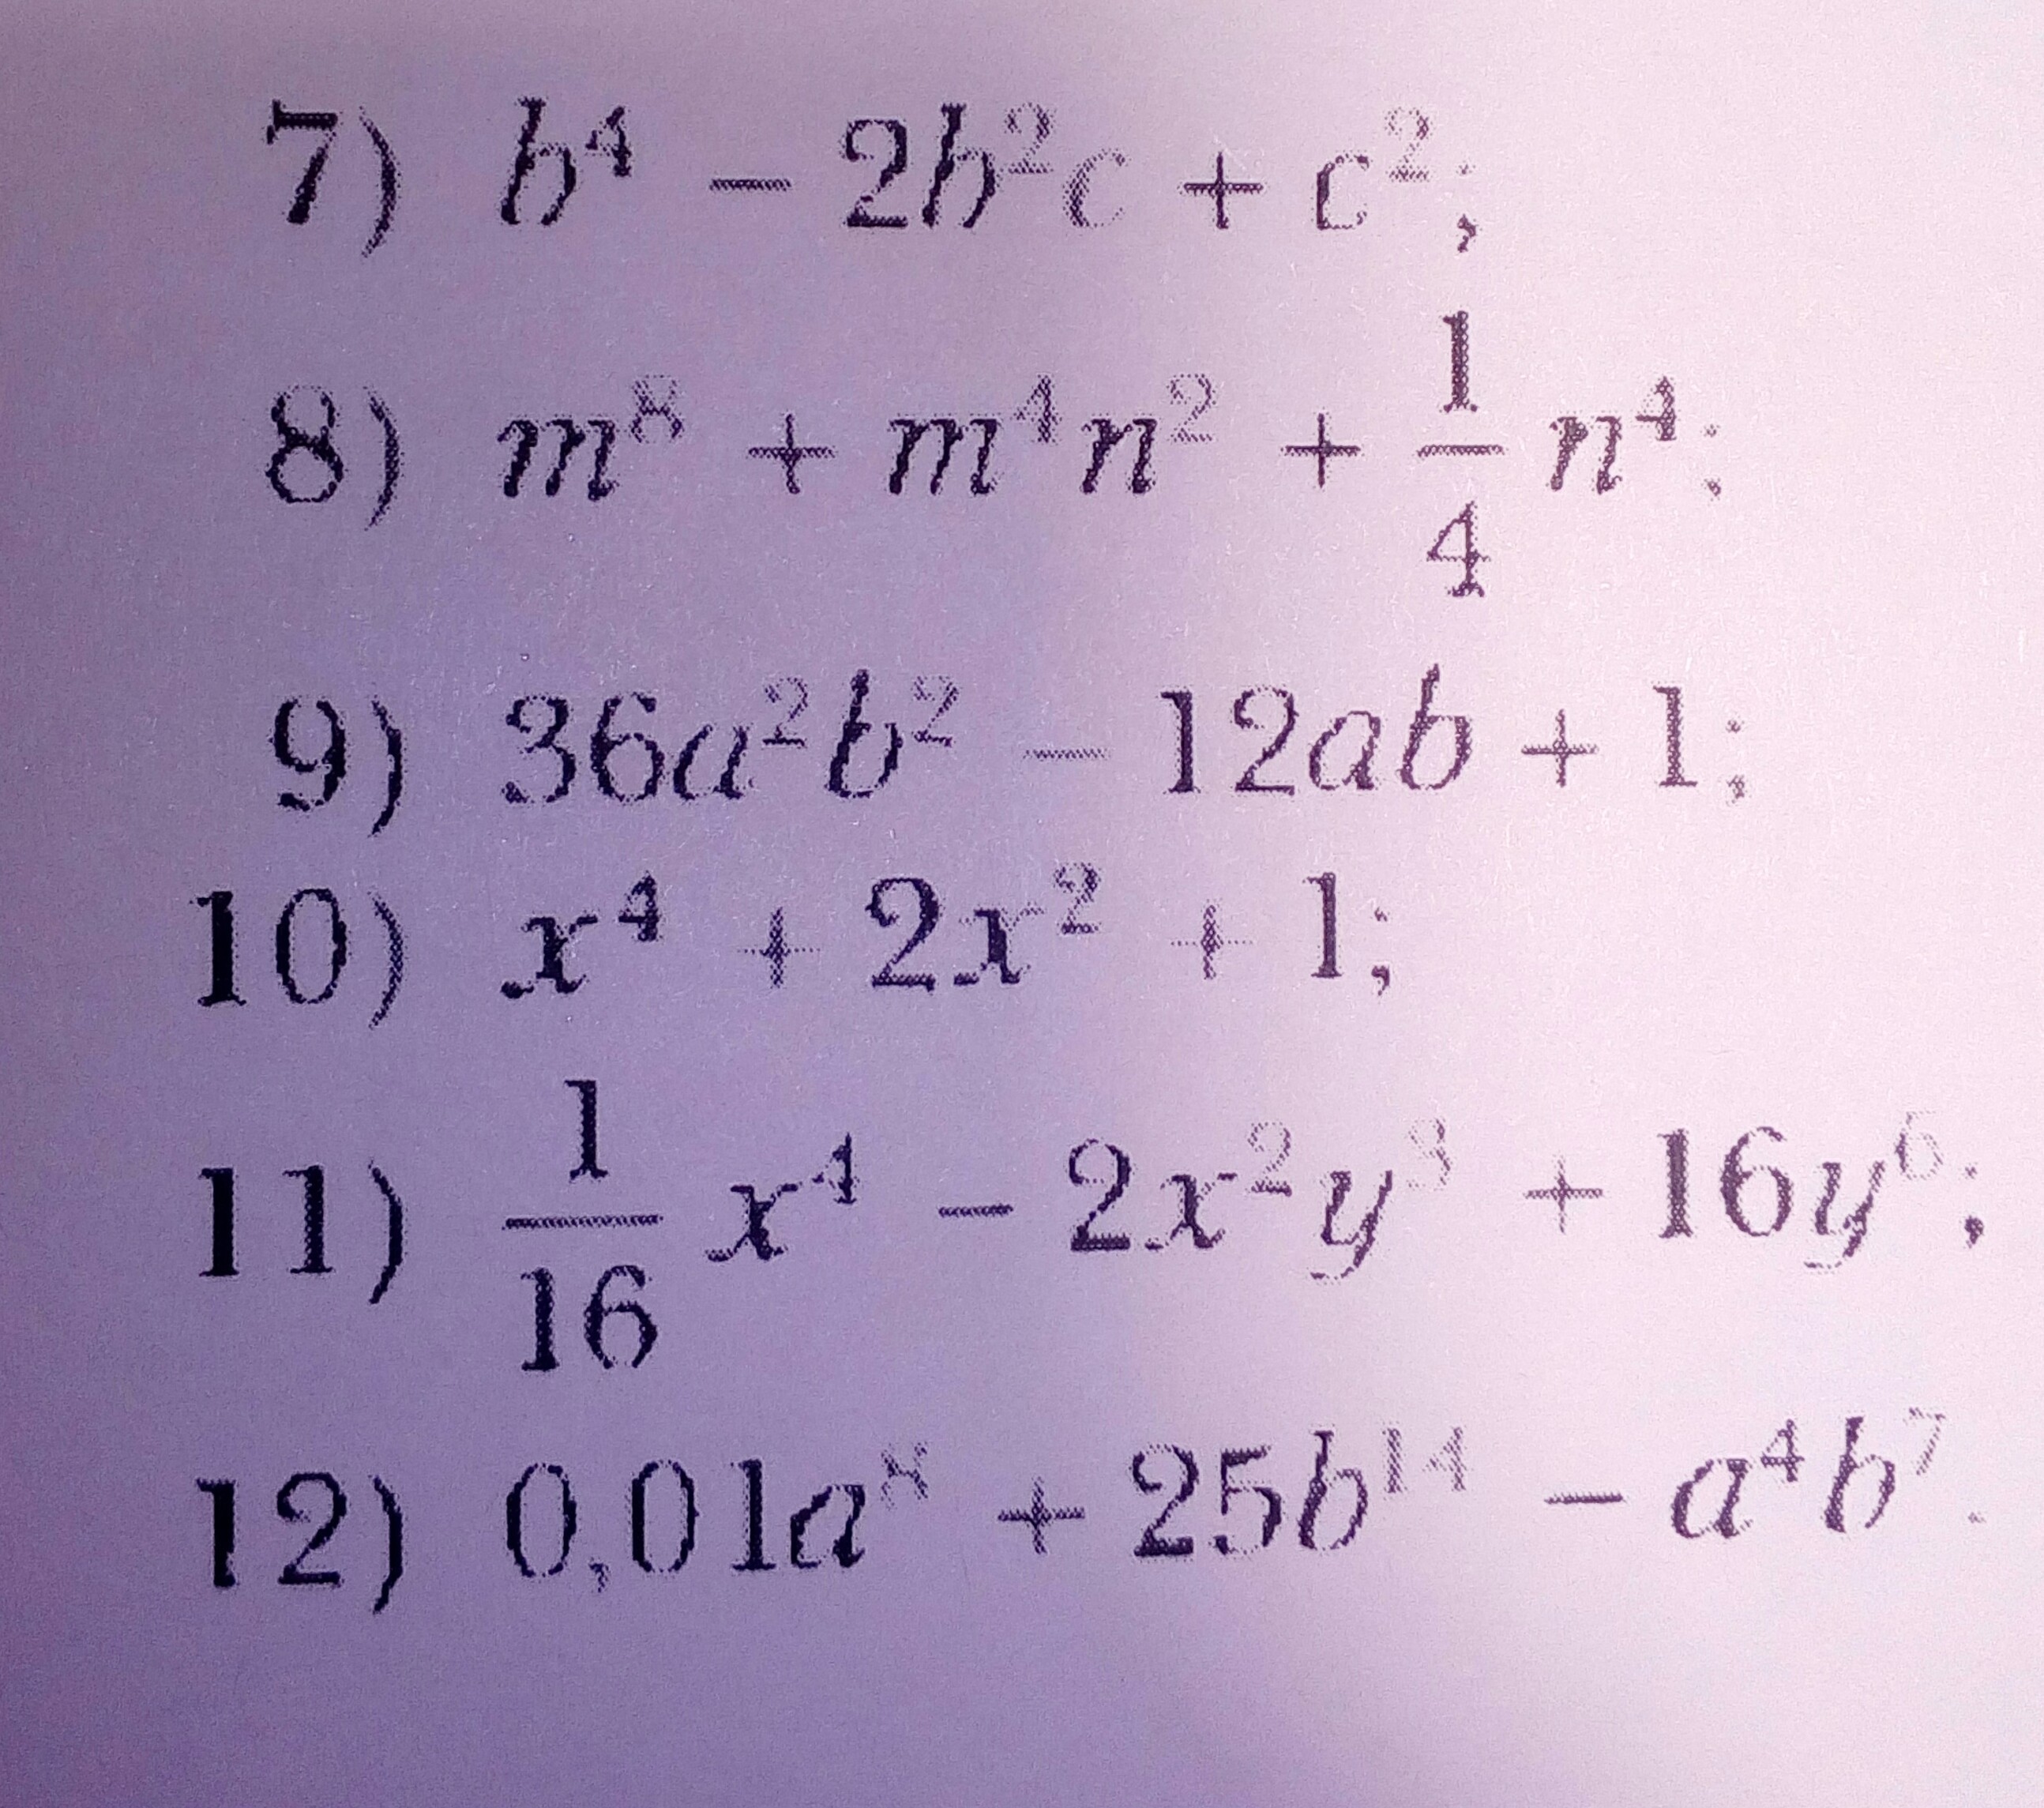 7) b⁴ − 2b²c + c²;
8) m⁸ + m⁴n² + 1/4 n⁴;
9) 36a²b² − 12ab + 1;
10) x⁴ + 2x² + 1;
11) 1/16 x⁴ − 2x²y³ + 16y⁶;
12) 0,01a⁸ + 25b¹⁴ − a⁴b⁷.